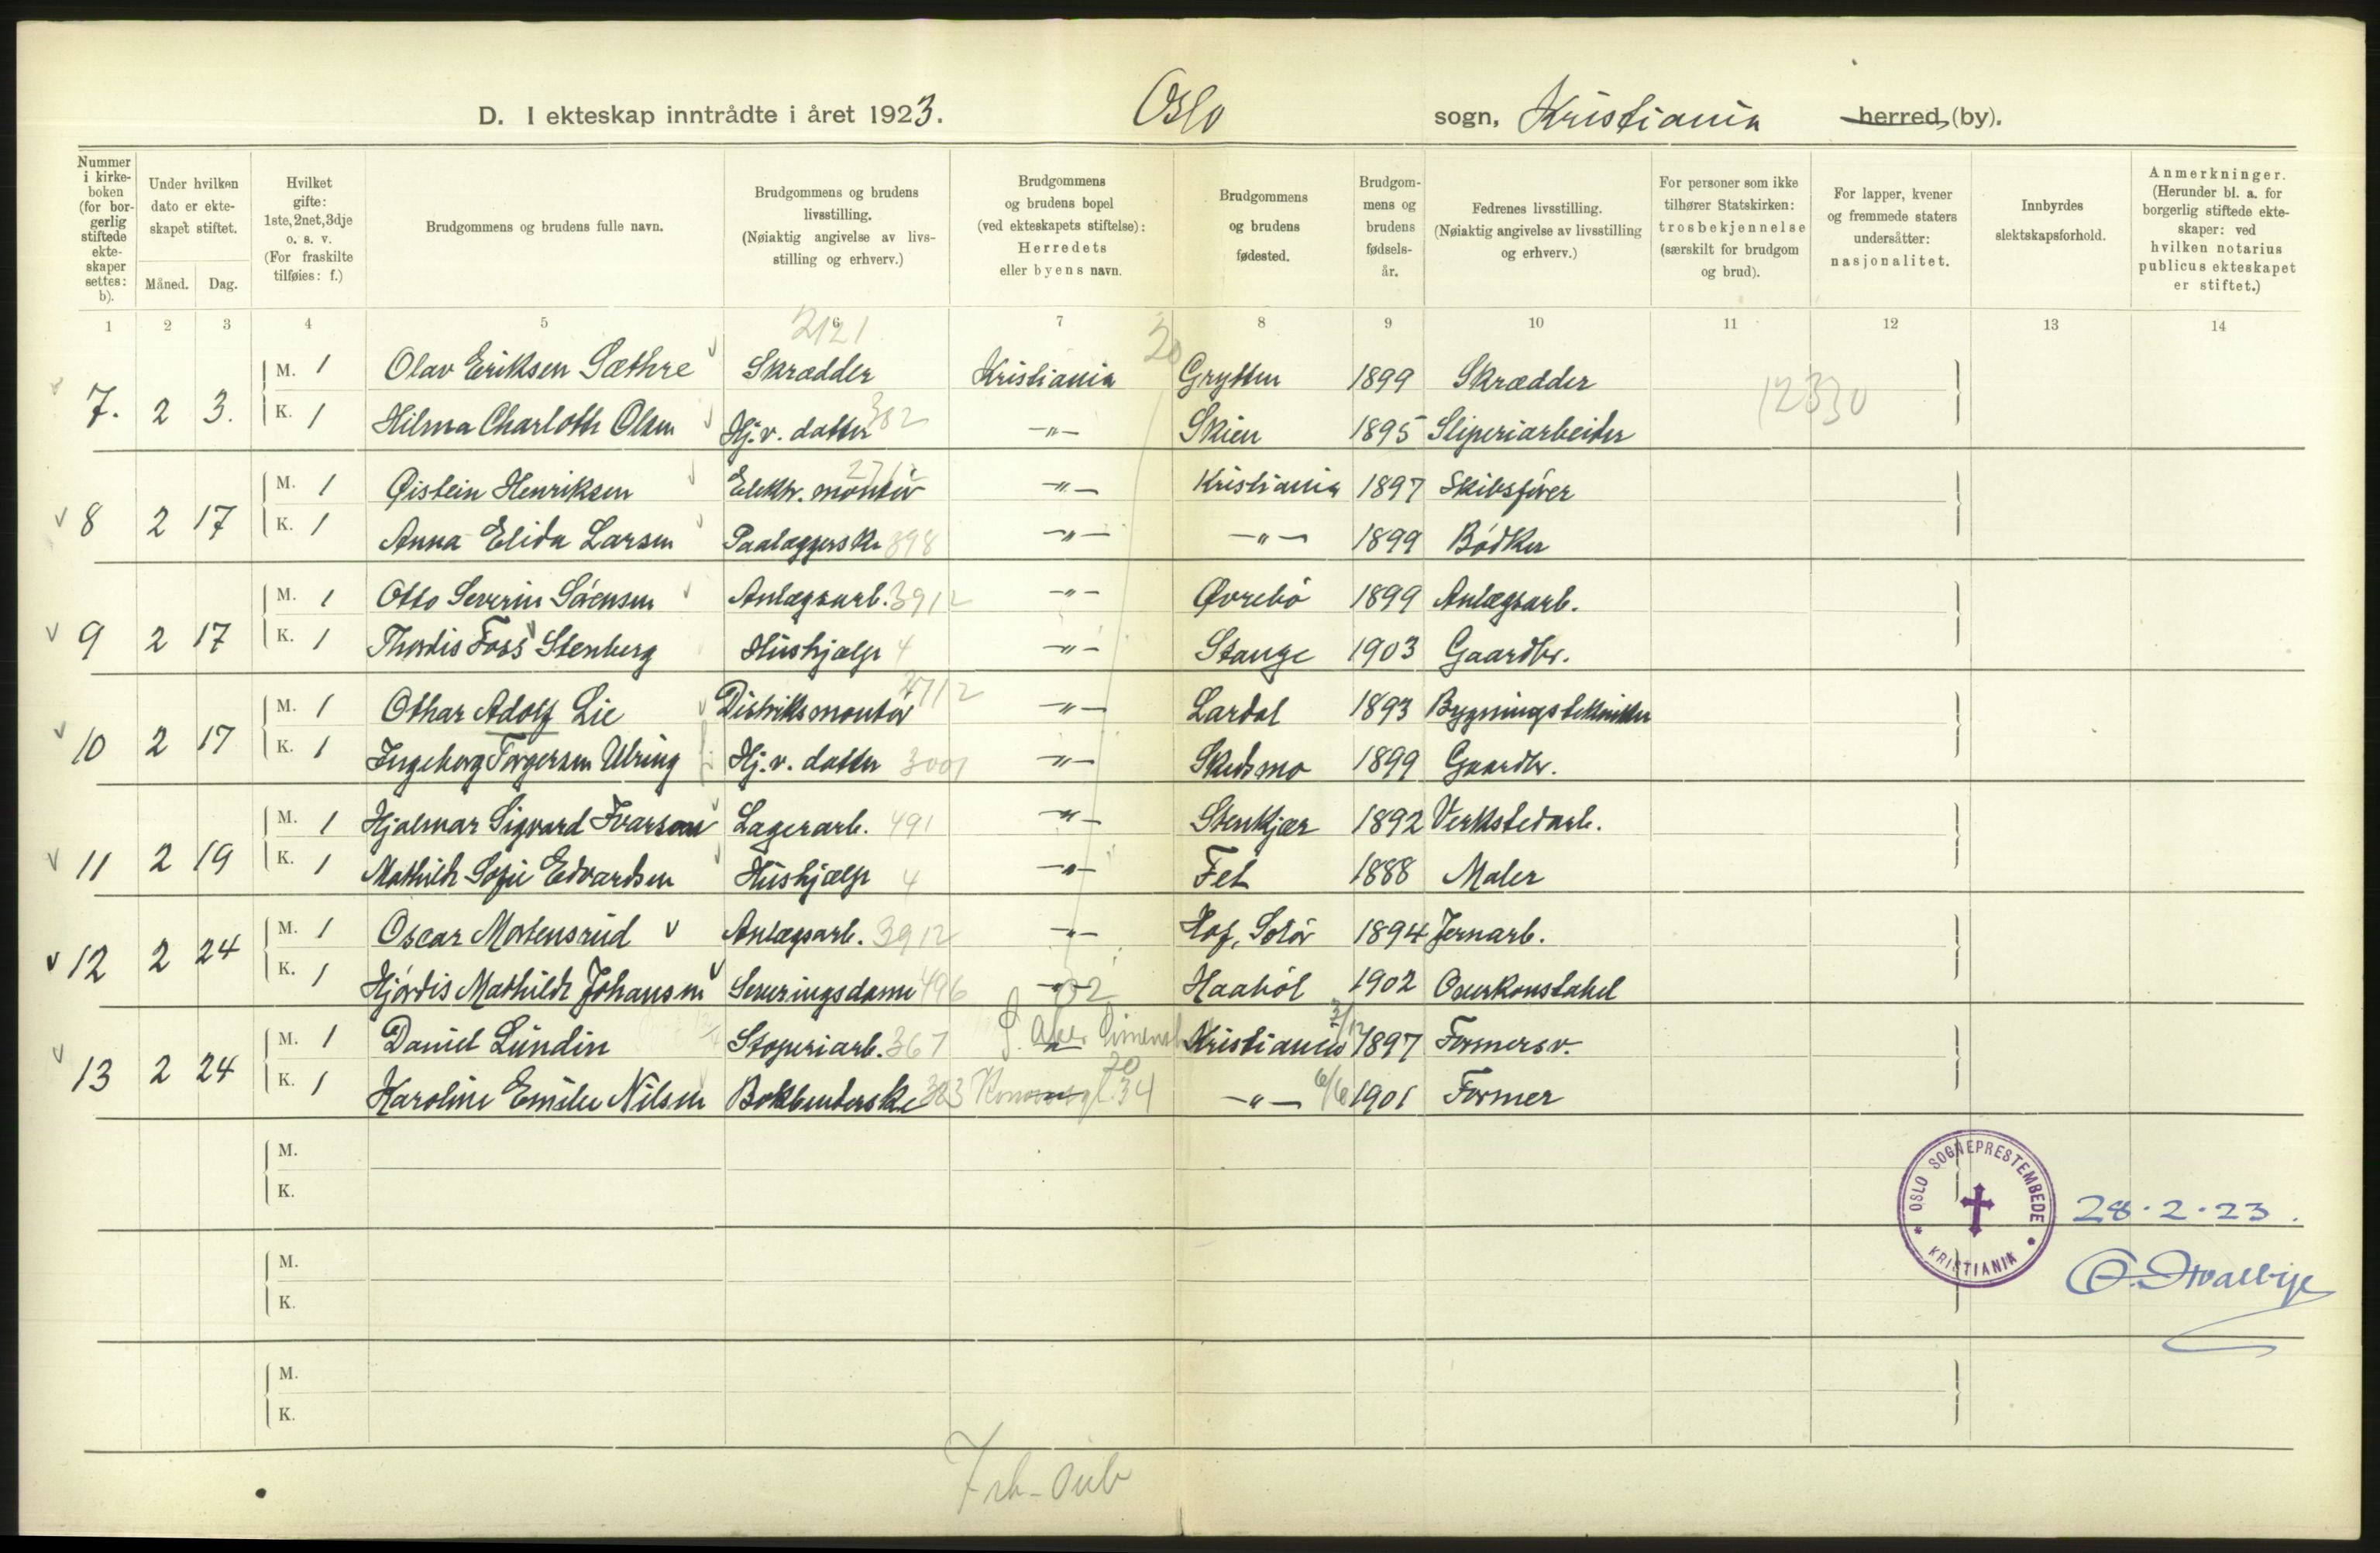 D. I ekteskap inntrådte i året 1923. Oslo sogn, Kristiania herred, (by).
Nummer i kirke-boken (for bor-gerlig stiftede ekte-skaper settes: b).
Under hvilken dato er ekte-skapet stiftet.
Måned. Dag.
Hvilket gifte: 1ste, 2net, 3dje o. s. v. (For fraskilte tilføies: f.)
Brudgommens og brudens fulle navn.
Brudgommens og brudens livsstilling. (Nøiaktig angivelse av livs-stilling og erhverv.)
Brudgommens og brudens bopel (ved ekteskapets stiftelse): Herredets eller byens navn.
Brudgommens og brudens fødested.
Brudgom-mens og brudens fødsels-år.
Fedrenes livsstilling. (Nøiaktig angivelse av livsstilling og erhverv.)
For personer som ikke tilhører Statskirken: trosbekjennelse (særskilt for brudgom og brud).
For lapper, kvener og fremmede staters undersåtter: nasjonalitet.
Innbyrdes slektskapsforhold.
Anmerkninger. (Herunder bl. a. for borgerlig stiftede ekte-skaper: ved hvilken notarius publicus ekteskapet er stiftet.)
1 2 3 4 5 6 7 8 9 10 11 12 13 14
2121 20
7. 2 3. M. 1 Olav Eriksen Sæthre Skrædder Kristiania Grytten 1899 Skrædder 12330
K. 1 Hilma Charloth Olsen Hj.v. datter 382 -"- Skien 1895 Sliperiarbeider
8 2 17 M. 1 Øistein Henriksen Elektr. montør -"- Kristiania 1897 Skibsfører
K. 1 Anna Elida Larsen Paalæggerske 398 -"- -"- 1899 Bødker
9 2 17 M. 1 Otto Severin Sørensen Anlægsarb. 3912 -"- Øvrebø 1899 Anlægsarb.
K. 1 Thordis Foss Stenberg Hushjælp 4 -"- Stange 1903 Gaardbr.
10 2 17 M. 1 Othar Adolf Lie Distriktsmontør -"- Lardal 1893 Bygningstekniker
K. 1 Ingeborg Torgersen Ulring Hj.v. datter 3001 -"- Skedsmo 1899 Gaardbr.
11 2 19 M. 1 Hjalmar Sigvard Ivarson Lagerarb. 491 -"- Stenkjær 1892 Verkstedarb.
K. 1 Mathilde Sofie Edvardsen Hushjælp 4 -"- Fet 1888 Maler
12 2 24 M. 1 Oscar Mortensrud Anlægsarb. 3912 -"- Hof, Solør 1894 Jernarb.
K. 1 Hjørdis Mathilde Johansen Serveringsdame 496 -"- Haabøl 1902 Overkonstabel
13 2 24 M. 1 Daniel Lundin Støperiarb. 367 -"- Kristiania 7/12 1897 Formersv.
K. 1 Karoline Emilie Nilsen Bokbinderske 383 34 -"- 6/6 1901 Former
M.
K.
M.
K.
M.
K.
OSLO SOGNEPRESTEMBEDE KRISTIANIA
28.2.23.